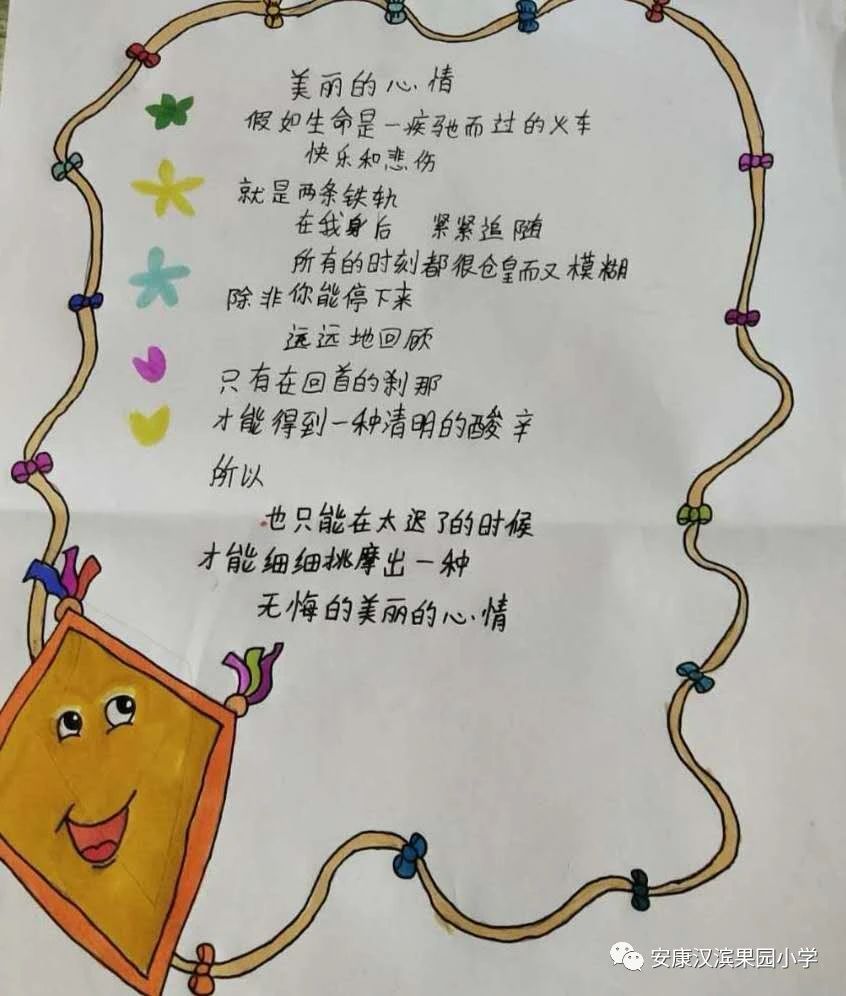 美丽的心情
假如生命是一疾驰而过的火车
快乐和悲伤
就是两条铁轨
在我身后 紧紧追随
所有的时刻都很仓皇而又模糊
除非你能停下来
远远地回顾
只有在回首的刹那
才能得到一种清明的酸辛
所以
也只能在太迟了的时候
才能细细挑摩出一种
无悔的美丽的心情
安康汉滨果园小学